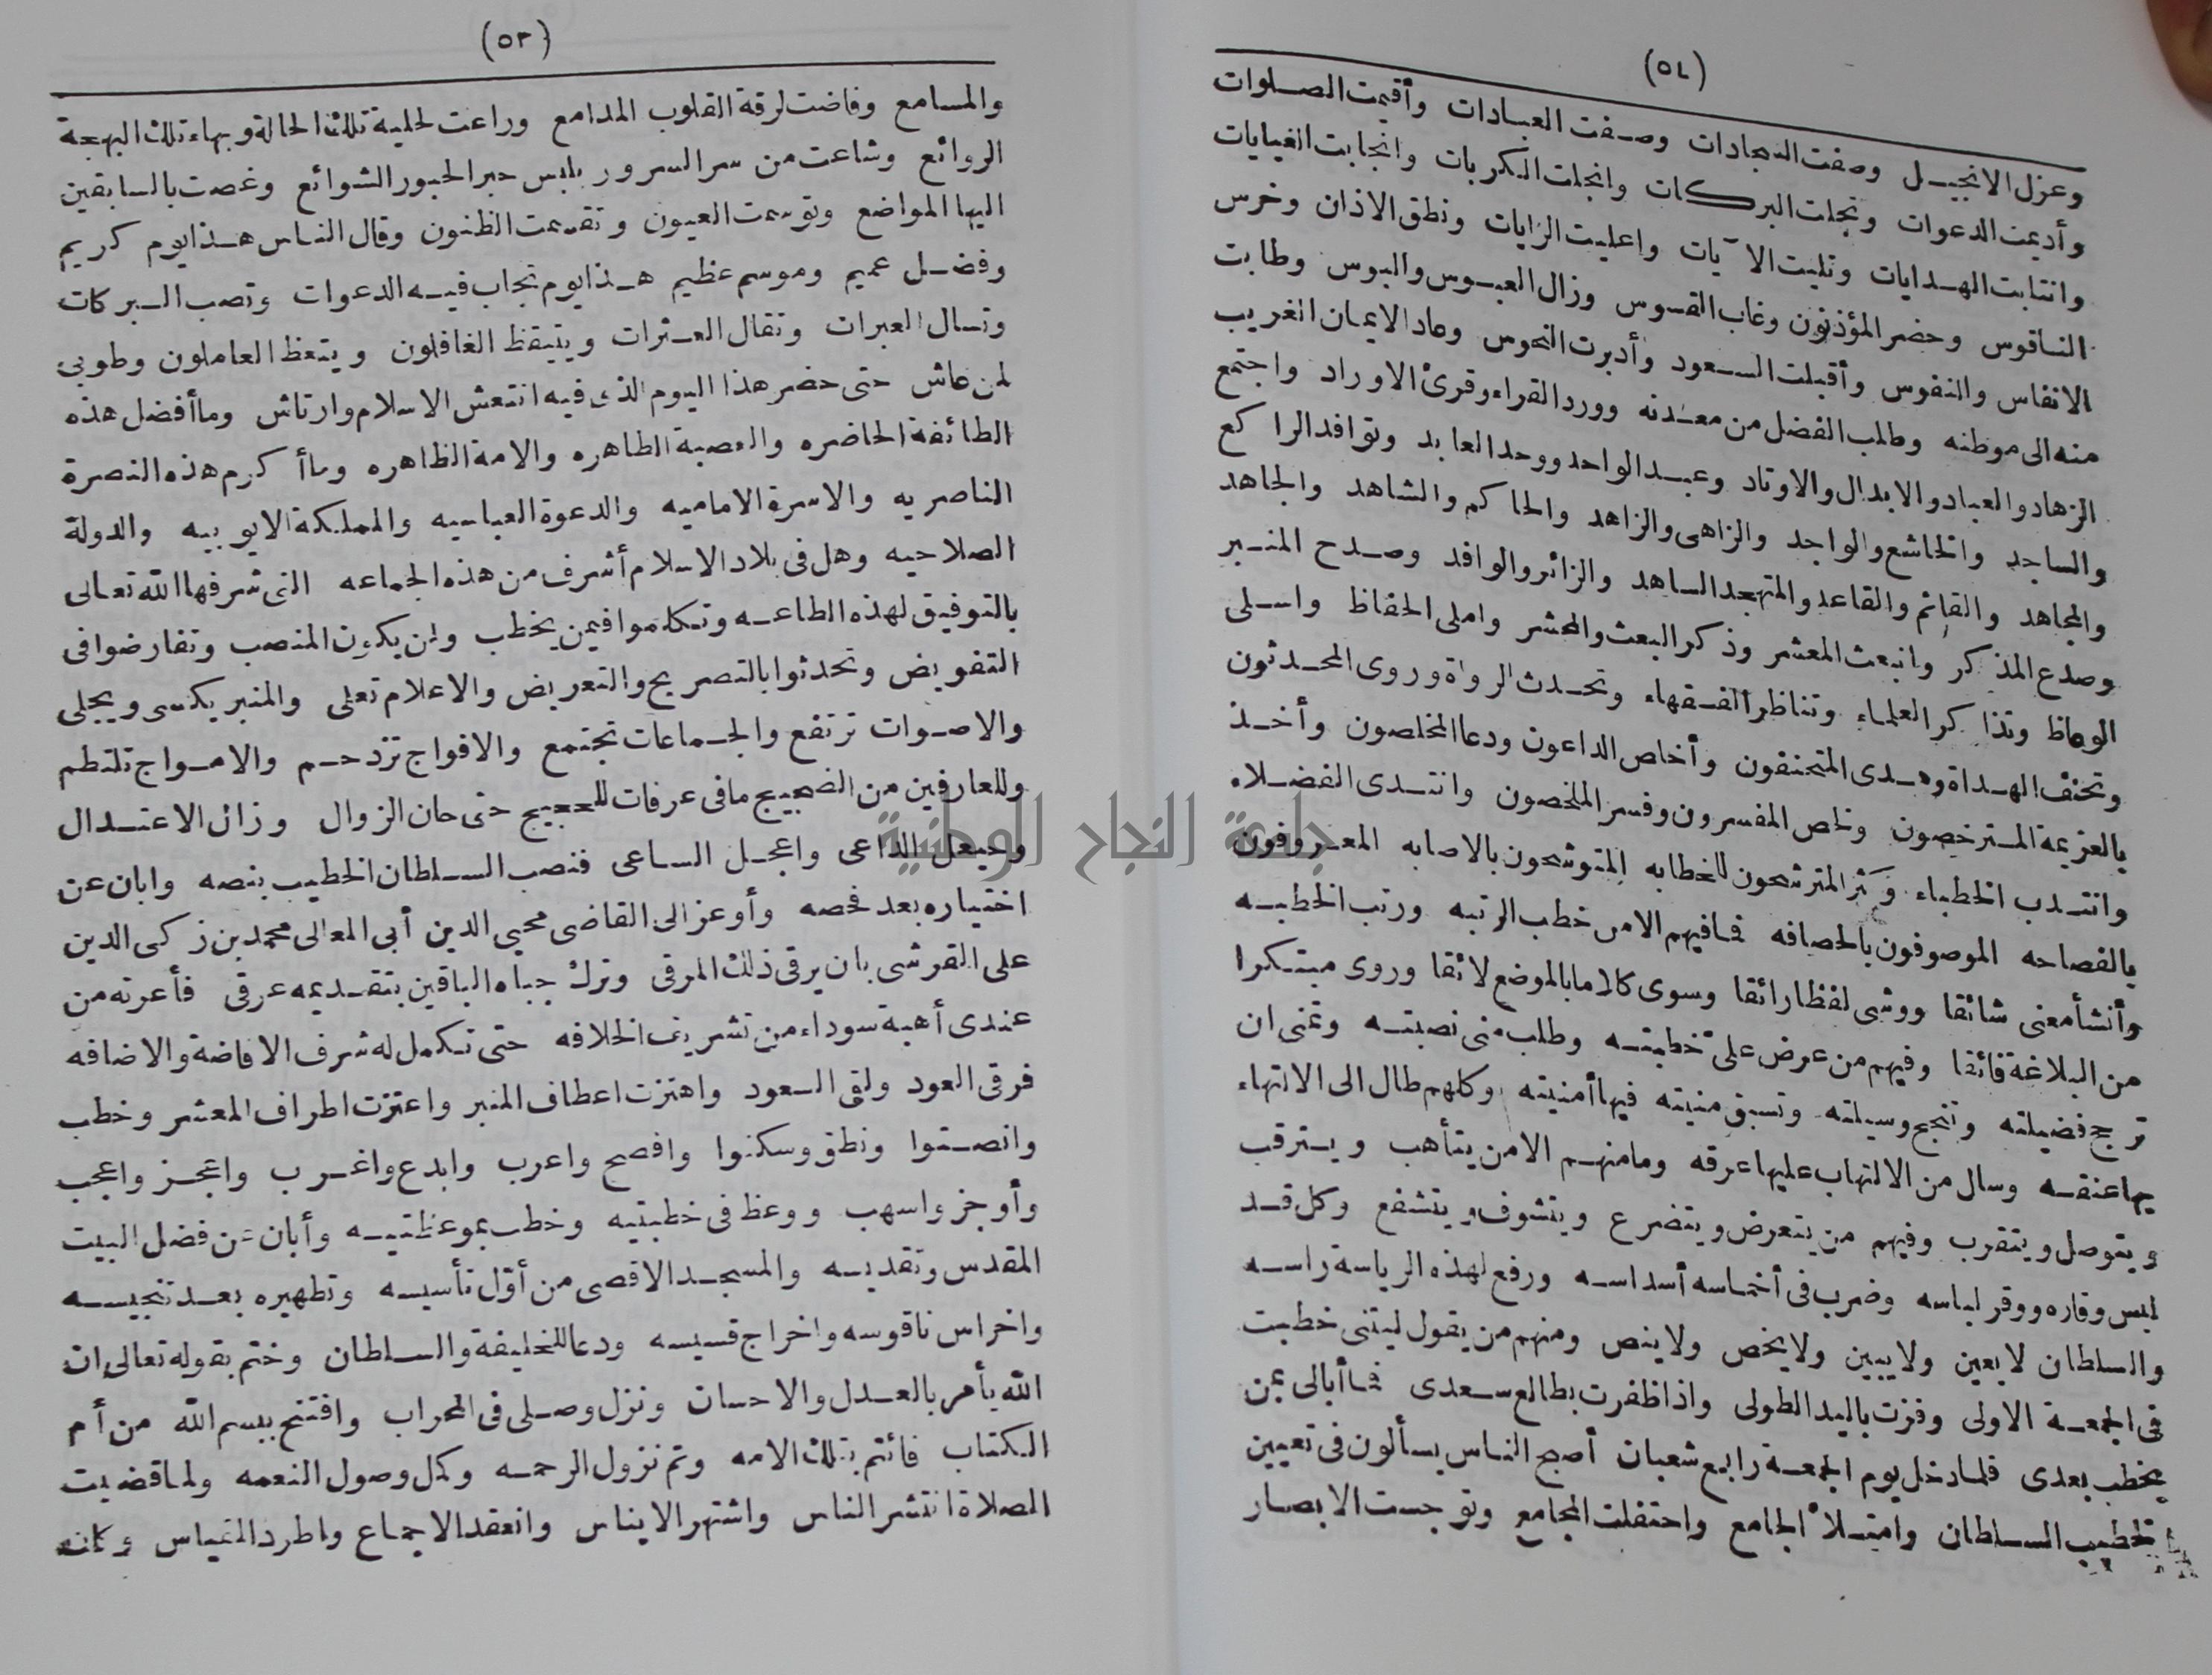 (٥٢)
وعزل الانجيل وصفت السجادات وصفت العبادات وأقيمت الصلوات
وأديمت الدعوات وتجلت البركات وانجلت الكربات وانجابت الغيابات
وانتابت الهدايات وتليت الآيات واعليت الرايات ونطق الاذان وخرس
الناقوس وحضر المؤذنون وغاب القسوس وزال العبوس والبوس وطابت
الانفاس والنفوس وأقبلت السعود وأدبرت النحوس وعاد الايمان الغريب
منه الى موطنه وطلب الفضل من معدنه وورد القراء وقرئ الاوراد واجتمع
الزهاد والعباد والابدال والاوتاد وعبد الواحد ووحد العابد وتوافد الراكع
والساجد والخاشع والواجد والزاهى والزاهد والحاكم والشاهد والجاهد
والمجاهد والقائم والقاعد والمتهجد الساهد والزائر والوافد وصدح المنبر
وصدع المذكر وانبعث المعشر وذكر البعث والمحشر واملى الحفاظ واسلى
الوعاظ وتذاكر العلماء وتناظر الفقهاء وتحدث الرواة وروى المحدثون
وتحنف الهداة وهدى المتحنفون وأخاص الداعون ودعا المخلصون وأخذ
بالعزيمة المسترخصون ولخص المفسرون وفسر الملخصون وانتدى الفضلاء
وانتدب الخطباء وكثر المترشحون للخطابه المتوشحون بالاصابه المعروفون
بالفصاحه الموصوفون بالحصافه فما فيهم الامن خطب الرتبه ورتب الخطبه
وأنشأ معنى شائقا ووشى لفظا رائقا وسوى كلاما بالموضع لائقا وروى مبتكرا
من البلاغة فائقا وفيهم من عرض على خطبته وطلب منى نصبته وتمنى ان
ترجح فضيلته وتنجح وسيلته وتسبق منيته فيها أمنيته وكلهم طال الى الالتهاء
بها عنقه وسال من الالتهاب عليها عرقه وما منهم الامن يتأهب ويترقب
ويتوصل ويتقرب وفيهم من يتعرض ويتضرع ويتشوف ويتشفع وكل قد
لبس وقاره ووقر لباسه وضرب فى أخماسه أسداسه ورفع لهذه الرياسة راسه
والسلطان لا يعين ولا يبين ولا يخص ولا ينص ومنهم من يقول ليتنى خطبت
فى الجمعة الاولى وفزت باليد الطولى واذا ظفرت بطالع سعدى فما أبالى بمن
يخطب بعدى فلما دخل يوم الجمعة رابع شعبان أصبح الناس يسألون فى تعيين
خطيب السلطان وامتلأ الجامع واحتفلت المجامع وتوجست الابصار
(٥٣)
والمسامع وفاضت لرقة القلوب المدامع وراعت لحلية تلك الحالة وبهاء تلك البهجة
الروائع وشاعت من سر السرور بلبس حبر الحبور الشوائع وغصت بالسابقين
اليها المواضع وتوسمت العيون وتقسمت الظنون وقال الناس هذا يوم كريم
وفضل عميم وموسم عظيم هذا يوم تجاب فيه الدعوات وتصب البركات
وتسال العبرات وتقال العثرات ويتيقظ الغافلون ويتعظ العاملون وطوبى
لمن عاش حتى حضر هذا اليوم الذى فيه انتعش الاسلام وارتاش وما أفضل هذه
الطائفة الحاضره والعصبة الطاهره والامة الظاهره وما أكرم هذه النصرة
الناصريه والاسرة الاماميه والدعوة العباسيه والمملكة الايوبيه والدولة
الصلاحيه وهل فى بلاد الاسلام أشرف من هذه الجماعه التى شرفها الله تعالى
بالتوفيق لهذه الطاعه وتكلموا فيمن يخطب ولمن يكون المنصب وتفارضوا فى
التفويض وتحدثوا بالتصريح والتعريض والاعلام تعلى والمنبر يكسى ويجلى
والاصوات ترتفع والجماعات تجتمع والافواج تزدحم والامواج تلتطم
وللعارفين من الضجيج ما فى عرفات للحجيج حتى حان الزوال وزال الاعتدال
وحيعل الداعى واعجل الساعى فنصب السلطان الخطيب بنصه وابان عن
اختياره بعد فحصه وأوعز الى القاضى محيي الدين أبى المعالى محمد بن زكى الدين
على القرشى بان يرقى ذلك المرقى وترك جباه الباقين بتقديمه عرقى فأعرته من
عندى أهبة سوداء من تشريف الخلافه حتى تكمل له شرف الافاضة والاضافه
فرقى العود ولقى السعود واهتزت اعطاف المنبر واعتزت اطراف المعشر وخطب
وانصتوا ونطق وسكتوا وافصح واعرب وابدع واغرب واعجز واعجب
وأوجز واسهب ووعظ فى خطبتيه وخطب بموعظتيه وأبان عن فضل البيت
المقدس وتقديسه والمسجد الاقصى من أول تأسيسه وتطهيره بعد تنجيسه
واخراس ناقوسه واخراج قسيسه ودعا للخليفة والسلطان وختم بقوله تعالى ان
الله يأمر بالعدل والاحسان ونزل وصلى فى المحراب وافتتح ببسم الله من أم
الكتاب فائتم بتلك الامه وتم نزول الرحمه وكمل وصول النعمه ولما قضيت
الصلاة انتشر الناس واشتهر الايناس وانعقد الاجماع واطرد القياس وكان
جامعة النجاح الوطنية